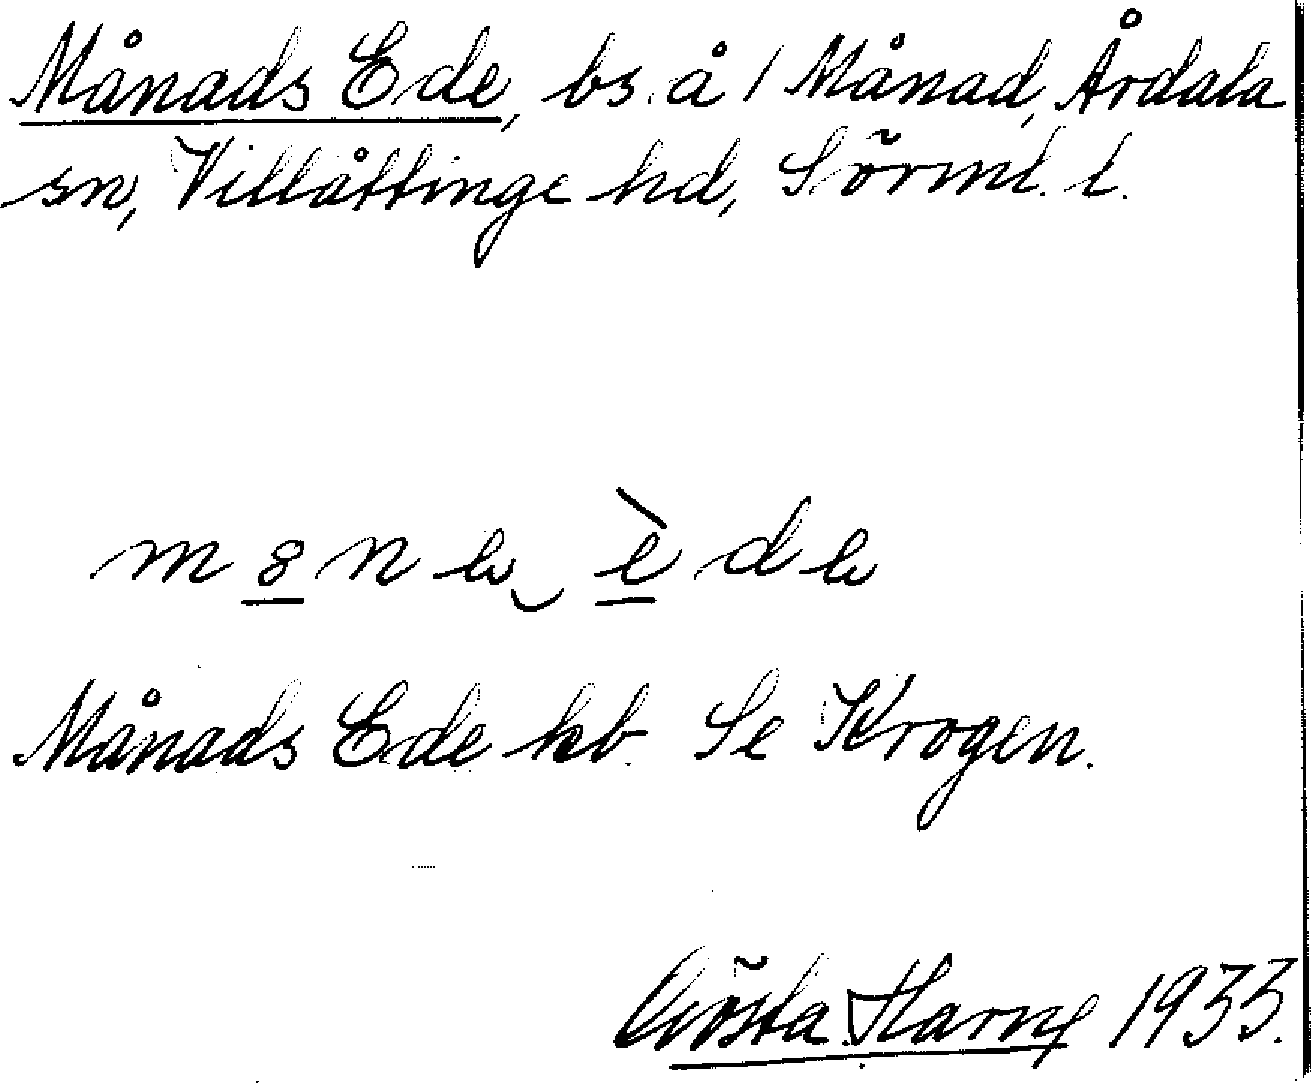 Månads Ede, bs. å 1 Månad, Årdala
sn, Villåttinge hd, Sörml. l.
Månads Ede kb. Se Krogen.
Gösta Harne 1933.